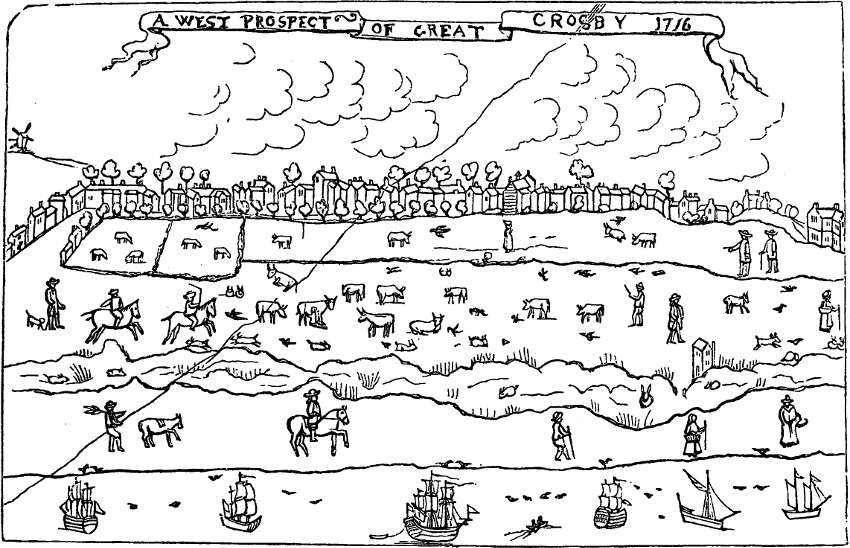 A WEST PROSPECT OF GREAT CROSBY 1716